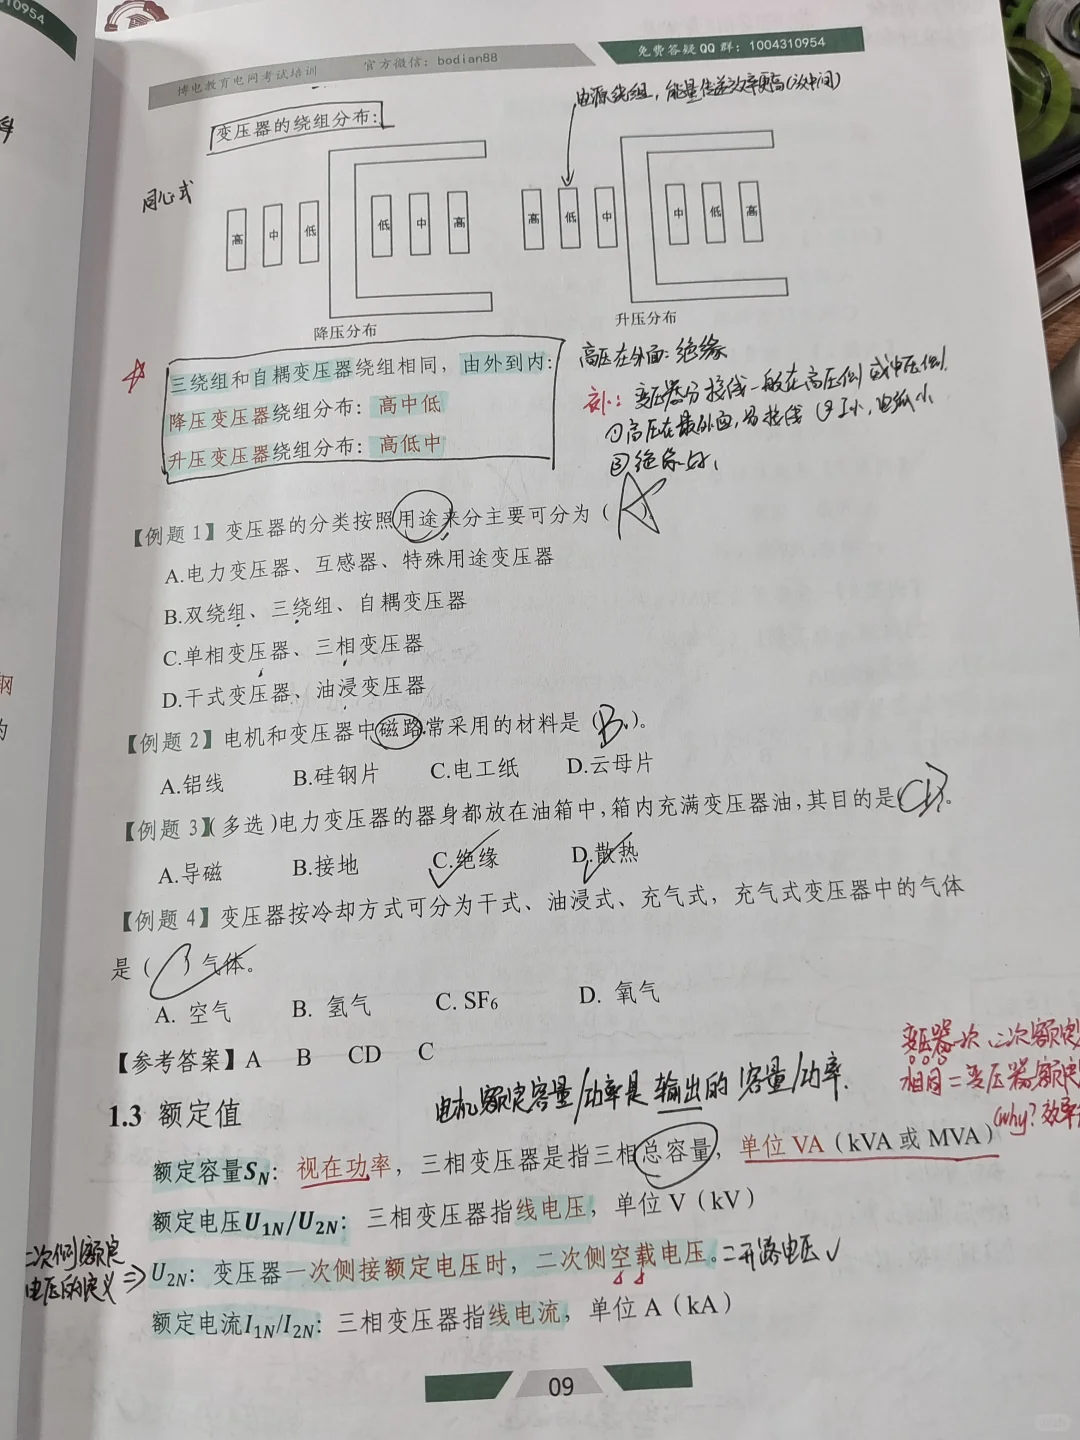 10954
博电教育电网考试培训 官方微信：bodian88 免费答疑QQ群：1004310954
电源绕组，能量传递效率更高(次中间)
变压器的绕组分布：
同心式
高 中 低 低 中 高
高 低 中 中 低 高
降压分布 升压分布
三绕组和自耦变压器绕组相同，由外到内：
降压变压器绕组分布：高中低
升压变压器绕组分布：高低中
高压在外面：绝缘
补：变压器分接线一般在高压侧或中压侧
①高压在最外面，易接线 ②I小，电弧小
③绝缘好
【例题 1】变压器的分类按照用途来分主要可分为（ A
A.电力变压器、互感器、特殊用途变压器
B.双绕组、三绕组、自耦变压器
C.单相变压器、三相变压器
D.干式变压器、油浸变压器
【例题 2】电机和变压器中磁路常采用的材料是（B）。
A.铝线 B.硅钢片 C.电工纸 D.云母片
【例题 3】(多选)电力变压器的器身都放在油箱中,箱内充满变压器油,其目的是(CD)。
A.导磁 B.接地 C.绝缘 D.散热
【例题 4】变压器按冷却方式可分为干式、油浸式、充气式，充气式变压器中的气体
是（ ）气体。
A. 空气 B. 氢气 C. SF₆ D. 氧气
【参考答案】A B CD C
电机额定容量/功率是输出的容量/功率.
变压器一次、二次额定
相同=变压器额定
(why?效率
1.3 额定值
额定容量S_N：视在功率，三相变压器是指三相总容量，单位 VA（kVA 或 MVA）
额定电压U₁N/U₂N：三相变压器指线电压，单位 V（kV）
二次侧额定
电压的定义⇒
U₂N：变压器一次侧接额定电压时，二次侧空载电压。=开路电压✓
额定电流I₁N/I₂N：三相变压器指线电流，单位 A（kA）
09
科
钢